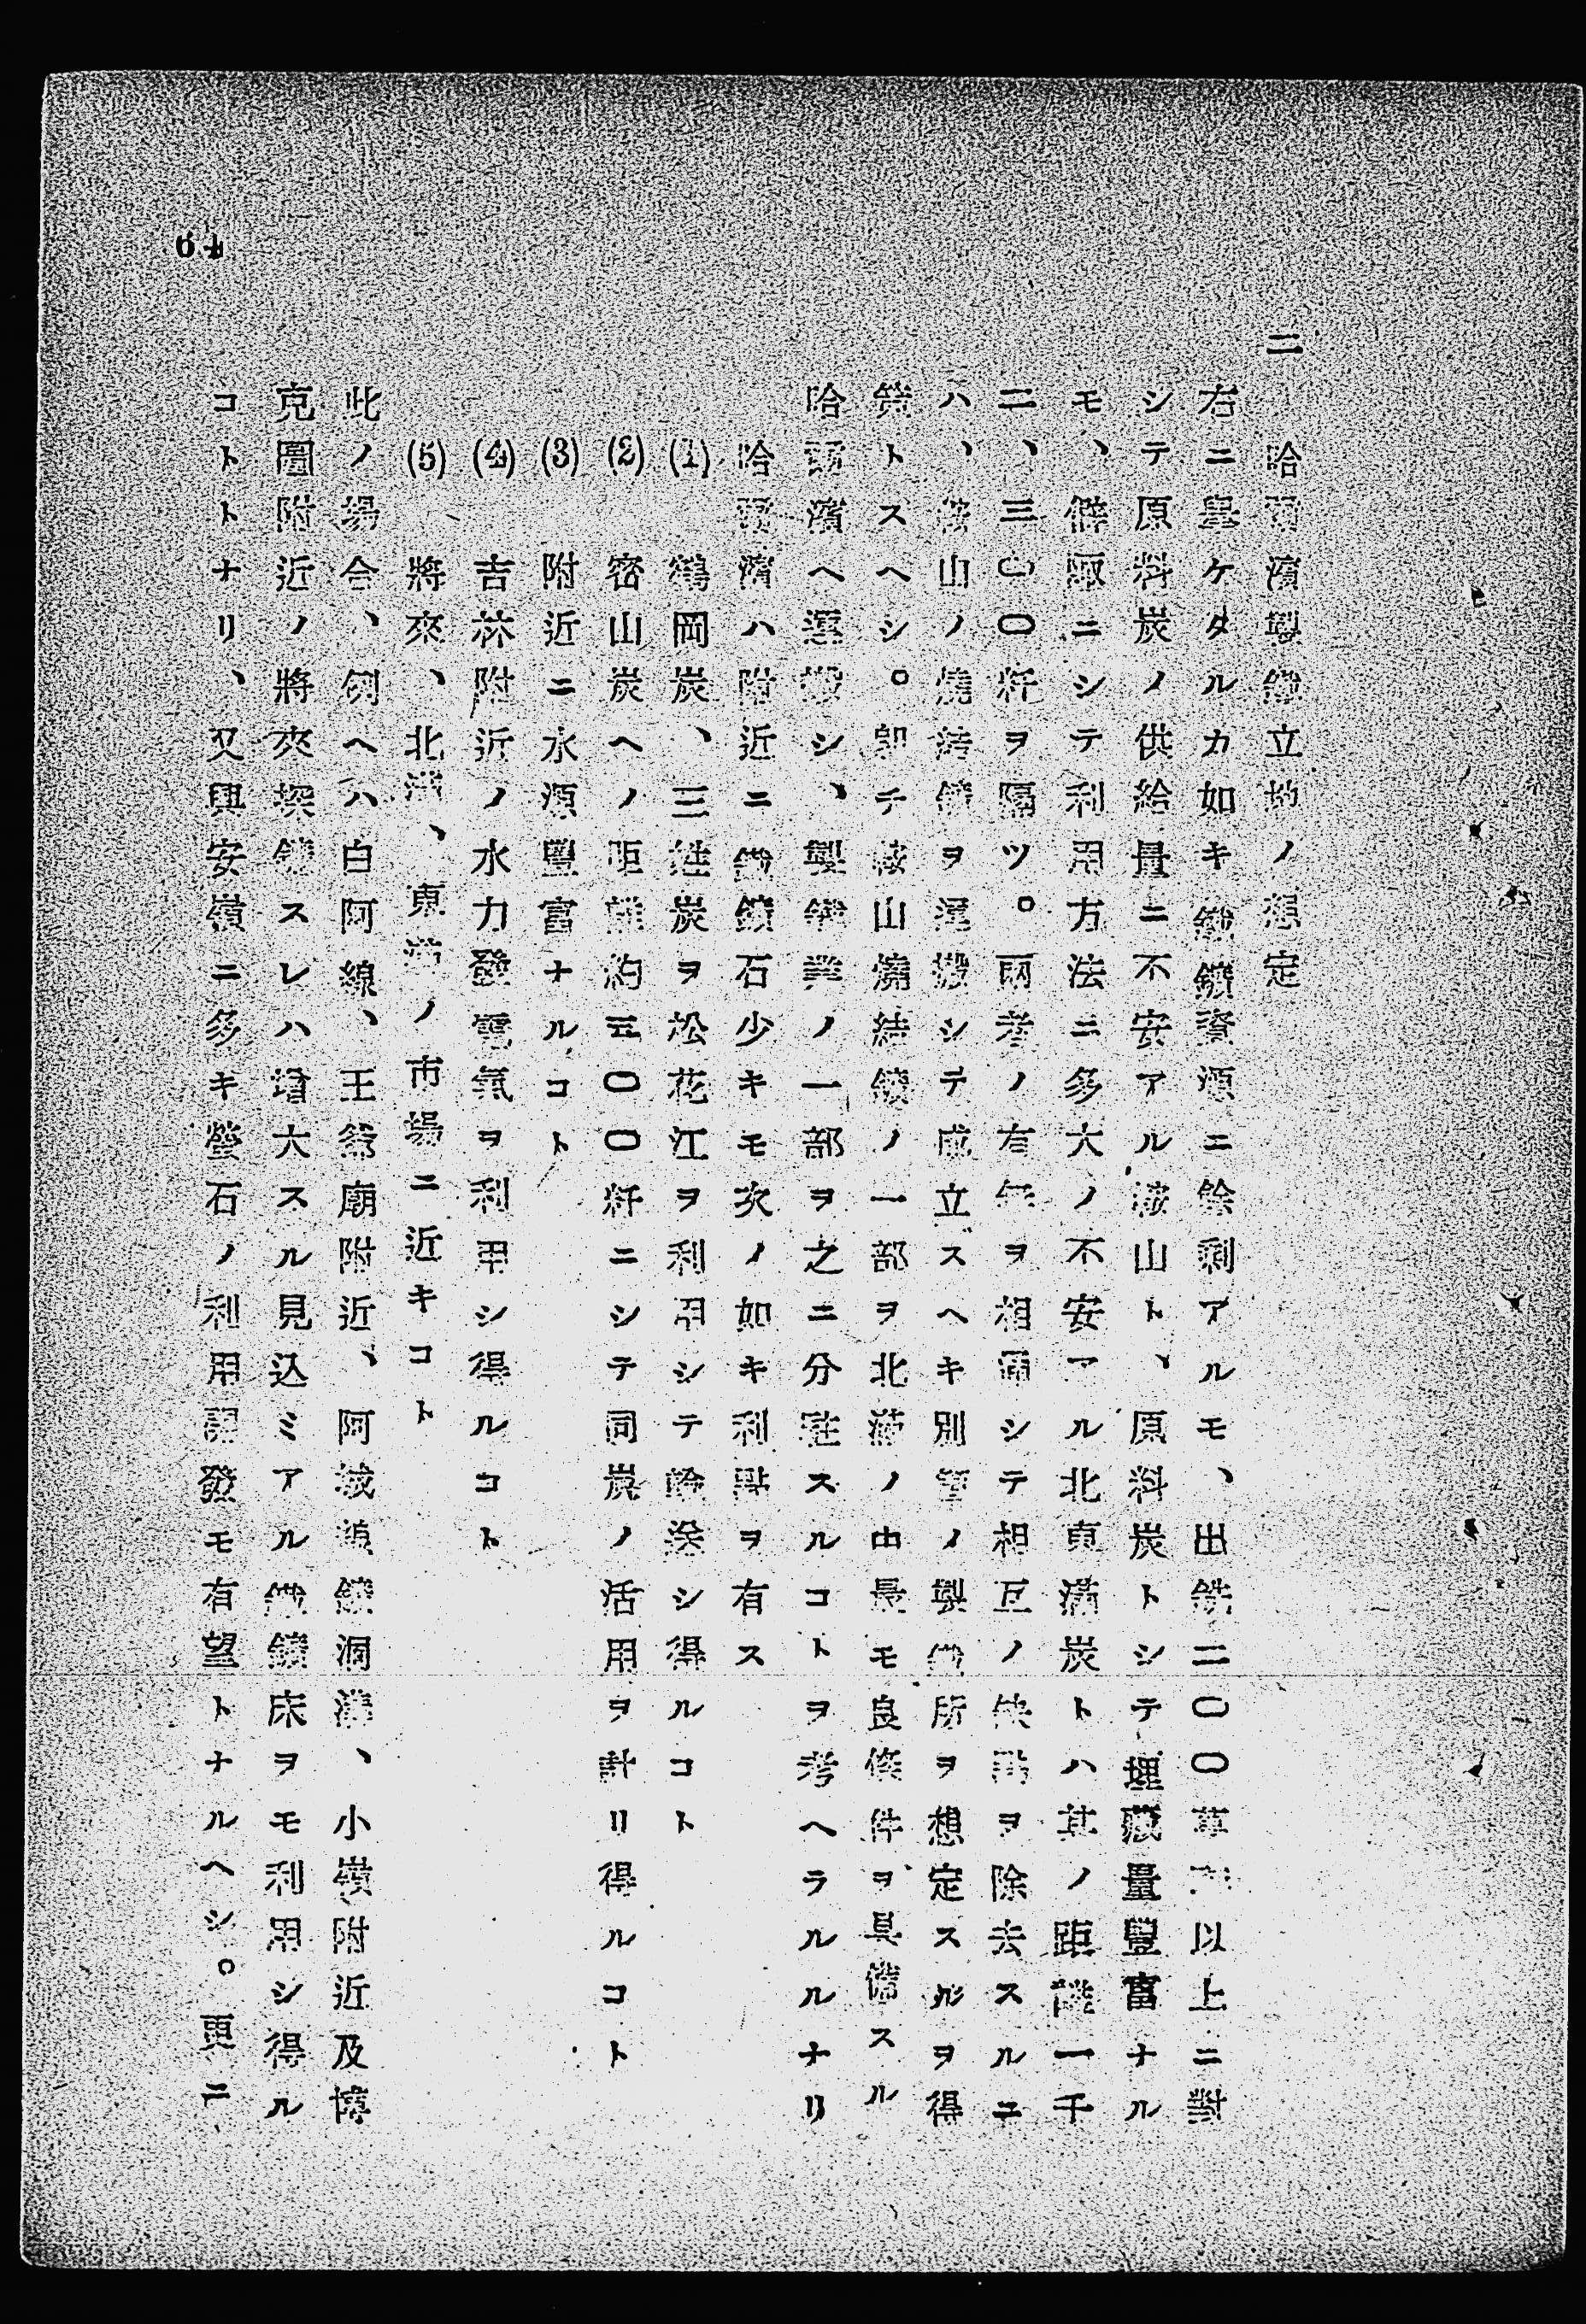 二　哈爾濱製鐵立地ノ想定
右ニ擧ケタルカ如キ鐵鑛資源ニ餘剩アルモ、出銑二〇〇萬以上ニ對
シテ原料炭ノ供給量ニ不安アル鞍山ト、原料炭トシテ埋藏量豐富ナル
モ、僻陬ニシテ利用方法ニ多大ノ不安アル北東滿炭トハ其ノ距離一千
二、三〇〇粁ヲ隔ツ。兩者ノ有無ヲ相通シテ相互ノ缺陷ヲ除去スルニ
ハ、鞍山ノ燒結鑛ヲ運搬シテ成立スヘキ別箇ノ製鐵所ヲ想定スルヲ得
策トスヘシ。卽チ鞍山燒結鑛ノ一部ヲ北滿ノ中最モ良條件ヲ具備スル
哈爾濱ヘ運搬シ、製鐵業ノ一部ヲ之ニ分駐スルコトヲ考ヘラルルナリ
哈爾濱ハ附近ニ鐵鑛石少キモ次ノ如キ利點ヲ有ス
(1)　鶴岡炭、三姓炭ヲ松花江ヲ利用シテ輸送シ得ルコト
(2)　密山炭ヘノ距離約五〇〇粁ニシテ同炭ノ活用ヲ計リ得ルコト
(3)　附近ニ水源豐富ナルコト
(4)　吉林附近ノ水力發電氣ヲ利用シ得ルコト
(5)　將來、北滿、東滿ノ市場ニ近キコト
此ノ場合、例ヘハ白阿線、王爺廟附近、阿城鐵鑛洞溝、小嶺附近及博
克圖附近ノ將來探鑛スレハ增大スル見込ミアル鐵鑛床ヲモ利用シ得ル
コトトナリ、又興安嶺ニ多キ螢石ノ利用開發モ有望トナルヘシ。更ニ